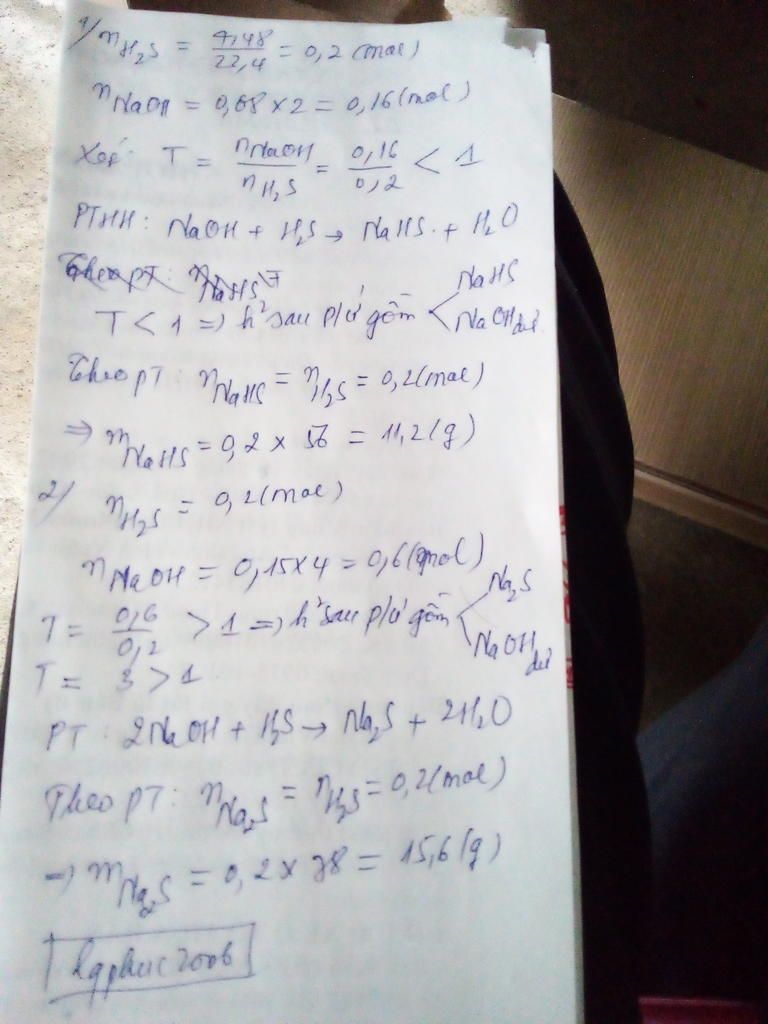 1/ nH₂S = 4,48/22,4 = 0,2 (mol)
nNaOH = 0,08 × 2 = 0,16 (mol)
Xét: T = nNaOH/nH₂S = 0,16/0,2 < 1
PTHH: NaOH + H₂S → NaHS + H₂O
Theo pT: nNaHS
T < 1 => h² sau p/ứ gồm < NaHS NaOH dư
Theo pT: nNaHS = nH₂S = 0,2 (mol)
=> mNaHS = 0,2 × 56 = 11,2 (g)
2/ nH₂S = 0,2 (mol)
nNaOH = 0,15×4 = 0,6 (mol)
T = 0,6/0,2 > 1 => h² sau p/ứ gồm < Na₂S NaOH dư
T = 3 > 1
PT: 2NaOH + H₂S → Na₂S + 2H₂O
Theo pT: nNa₂S = nH₂S = 0,2 (mol)
=> mNa₂S = 0,2 × 78 = 15,6 (g)